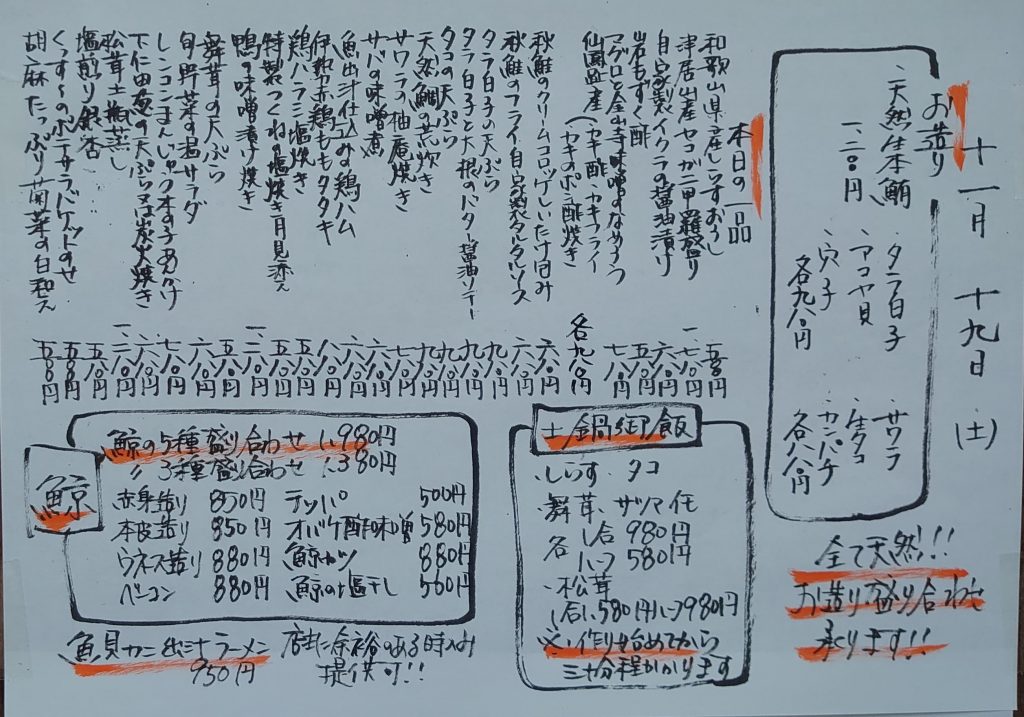 十一月 十九日 (土)
お造り
・天然生本鮪
一、二八〇円
・タラ白子
・アコヤ貝
・穴子
各九八〇円
・サワラ
・生タコ
・カンパチ
各八八〇円
全て天然!!
お造り盛り合わせ
承ります!!
本日の一品
和歌山県産しらすおろし 五八〇円
津居山産セコガニ甲羅盛り 一、七八〇円
自家製イクラの醤油漬け 六八〇円
岩もずく酢 五八〇円
マグロと金山寺味噌のなめろう 七八〇円
仙鳳趾産(カキ酢・カキフライ
カキのポン酢焼き 各九八〇円
秋鮭のクリームコロッケ しいたけ包み 六八〇円
秋鮭のフライ 自家製タルタルソース 六八〇円
タラ白子の天ぷら 九八〇円
タラ白子と大根のバター醤油ソテー 九八〇円
タコの天ぷら 九八〇円
天然鯛の荒炊き 九八〇円
サワラの柚庵焼き 七八〇円
サバの味噌煮 六八〇円
魚出汁仕込みの鶏ハム 六八〇円
伊勢赤鶏ももタタキ 八八〇円
鶏ハラミ塩焼き 五八〇円
特製つくねの塩焼き 月見添え 五八〇円
鴨の味噌漬け焼き
舞茸の天ぷら 五八〇円
旬野菜の温サラダ 六八〇円
レンコンまんじゅう 木の子あんかけ 七八〇円
下仁田葱の天ぷら又は炭火焼き 六八〇円
松茸土瓶蒸し
塩煎り銀杏 五八〇円
くんせいのポテサラ バケットのせ 五五〇円
胡麻たっぷり 菊菜の白和え 五五〇円
鯨
鯨の5種盛り合わせ 1,980円
〃 3種盛り合わせ 1,380円
赤身造り 850円 テッパ 500円
本皮造り 850円 オバケ酢味噌 580円
ウネス造り 880円 鯨カツ 880円
ベーコン 880円 鯨の塩干し 560円
魚貝カニ出汁ラーメン
950円
店に余裕のある時のみ
提供可!!
土鍋御飯
・しらす・タコ
・舞茸・サツマイモ
各 1合 980円
ハーフ 580円
・松茸
1合1,580円ハーフ980円
※作り始めてから
三十分程かかります